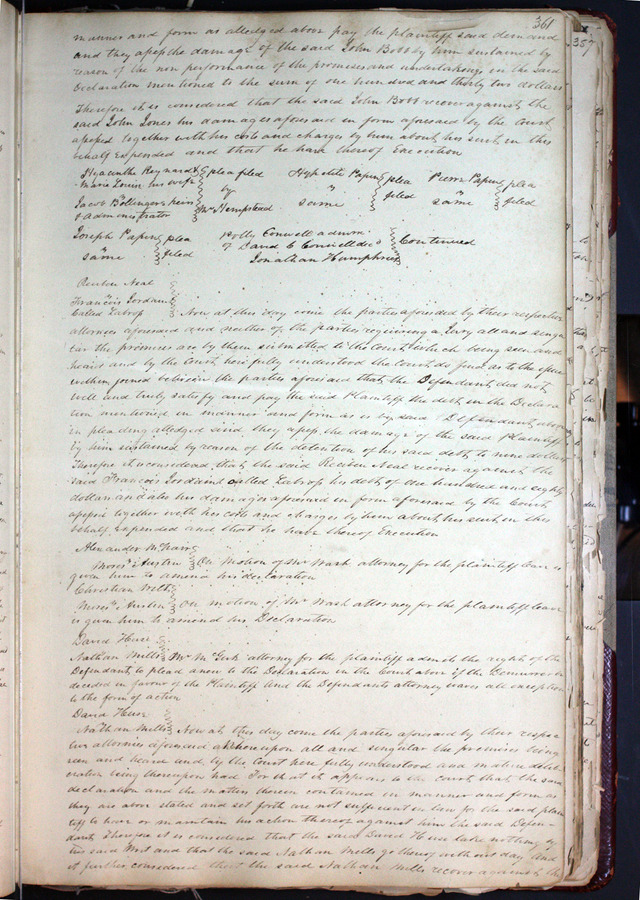 361
manner and form as alledged above pay the plaintiff said demand
and they assess the damage of the said John Bobb by him sustained by
reason of the non performance of the promises and undertakings in the said
declaration mentioned to the sum of one hundred and thirty two dollars
Therefore it is considered that the said John Bobb recover against the
said John Jones his damages aforesaid in form aforesaid by the Court
assessed together with his costs and charges by him about his suit in this
behalf expended and that he have thereof Execution
Hyacinthe Reynard & plea filed Hypolite Papin plea Papin plea
Marie Louise his wife by " filed " filed
Jacob Bollingers heirs Mr Hempstead same same
& administrator
Joseph Papin plea Polly Conwell admn Continued
" filed of David C Conwell decd
same Jonathan Humphries
Reuben Neal
François Jordan
Called Labross Now at this day come the parties aforesaid by their respective
attornies aforesaid and neither of the parties requiring a Jury all and singu
lar the premises are by them submitted to the Court which being seen and
heard and by the Court here fully understood the Court do find as to the issue
within joined between the parties aforesaid that the Defendant did not
well and truly satisfy and pay the said Plaintiff the debt in the Declara
tion mentioned in manner and form as is by said Defendant above
in pleading alledged and they assess the damage of the said Plaintiff
by him sustained by reason of the detention of his said debt to nine dollars
Therefore it is considered that the said Reuben Neal recover against the
said François Jordan called Labross his debt of one hundred and eighty
dollars and also his damages aforesaid in form aforesaid by the Court
assessed together with his costs and charges by him about his suit in this
behalf expended and that he have thereof Execution
Alexander McNair
Moses Austin On Motion of Mr Wash attorney for the plaintiff leave is
given him to amend his declaration
Christian Witt
Moses Austin On motion of Mr Wash attorney for the plaintiff leave
is given him to amend his Declaration
David Huse
Nathan Mills Mr McGirk attorney for the plaintiff admits the right of the
Defendant to plead anew to the Declaration in the Court above if the Demurrer be
decided in favour of the Plaintiff And the Defendants attorney waves all exception
to the form of action
David Huse
Nathan Mills Now at this day come the parties aforesaid by their respec
tive attornies aforesaid whereupon all and singular the premises being
seen and heard and by the Court here fully understood and mature delib
eration being thereupon had For that it appears to the Court that the said
declaration and the matters therein contained in manner and form as
they are above stated and set forth are not sufficient in law for the said plain
tiff to have or maintain his action thereof against him the said Defen-
dant Therefore it is considered that the said David Huse take nothing by
his said Writ and that the said Nathan Mills go thereof without day And
it further considered that the said Nathan Mills recover against the